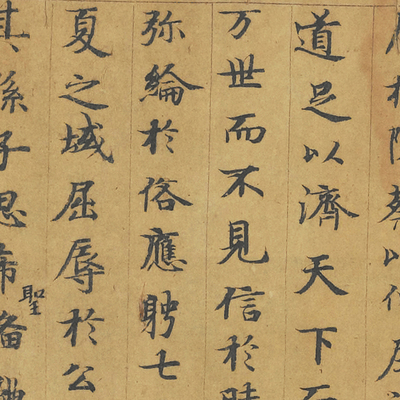 於陳蔡以仲尼
道足以濟天下而
万世而不見信於時
弥綸於俗應聘七
夏之域屈辱於公
其孫子思希聖備